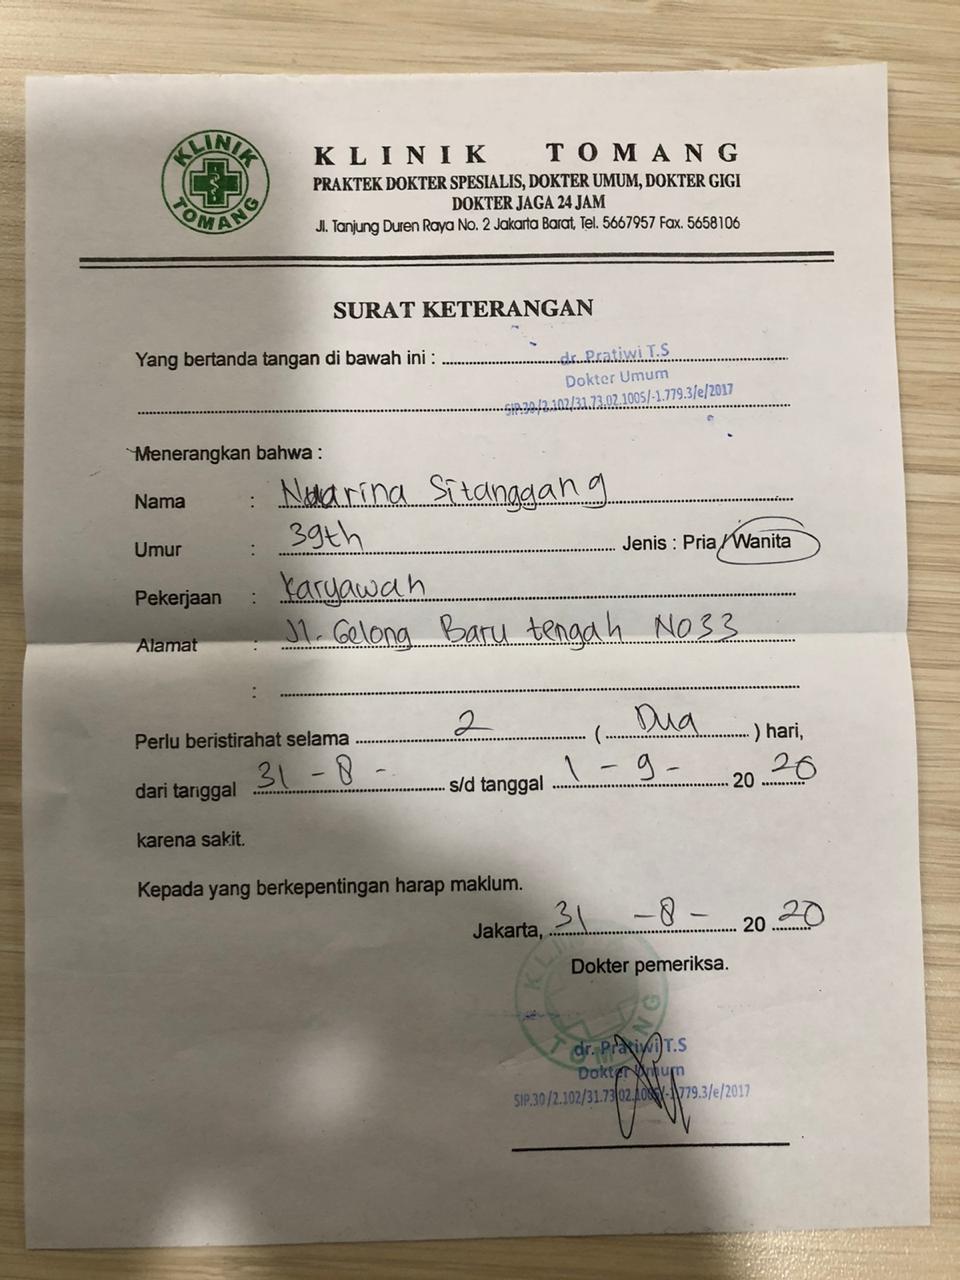 KLINIK TOMANG
KLINIK TOMANG
PRAKTEK DOKTER SPESIALIS, DOKTER UMUM, DOKTER GIGI
DOKTER JAGA 24 JAM
Jl. Tanjung Duren Raya No. 2 Jakarta Barat, Tel. 5667957 Fax. 5658106
SURAT KETERANGAN
Yang bertanda tangan di bawah ini : dr. Pratiwi T.S
Dokter Umum
SIP.30/2.102/31.73.02.1005/-1.779.3/e/2017
Menerangkan bahwa :
Nama : Sitanggang
Umur : 39th Jenis : Pria / Wanita
Pekerjaan : Karyawan
Alamat : Jl. Gelong Baru tengah NO33
:
Perlu beristirahat selama 2 ( Dua ) hari,
dari tanggal 31 - 8 - s/d tanggal 1 - 9 - 20 20
karena sakit.
Kepada yang berkepentingan harap maklum.
Jakarta, 31 - 8 - 20 20
Dokter pemeriksa.
KLINIK TOMANG
dr. Pratiwi T.S
Dokter Umum
SIP.30/2.102/31.73.02.1005/-1.779.3/e/2017